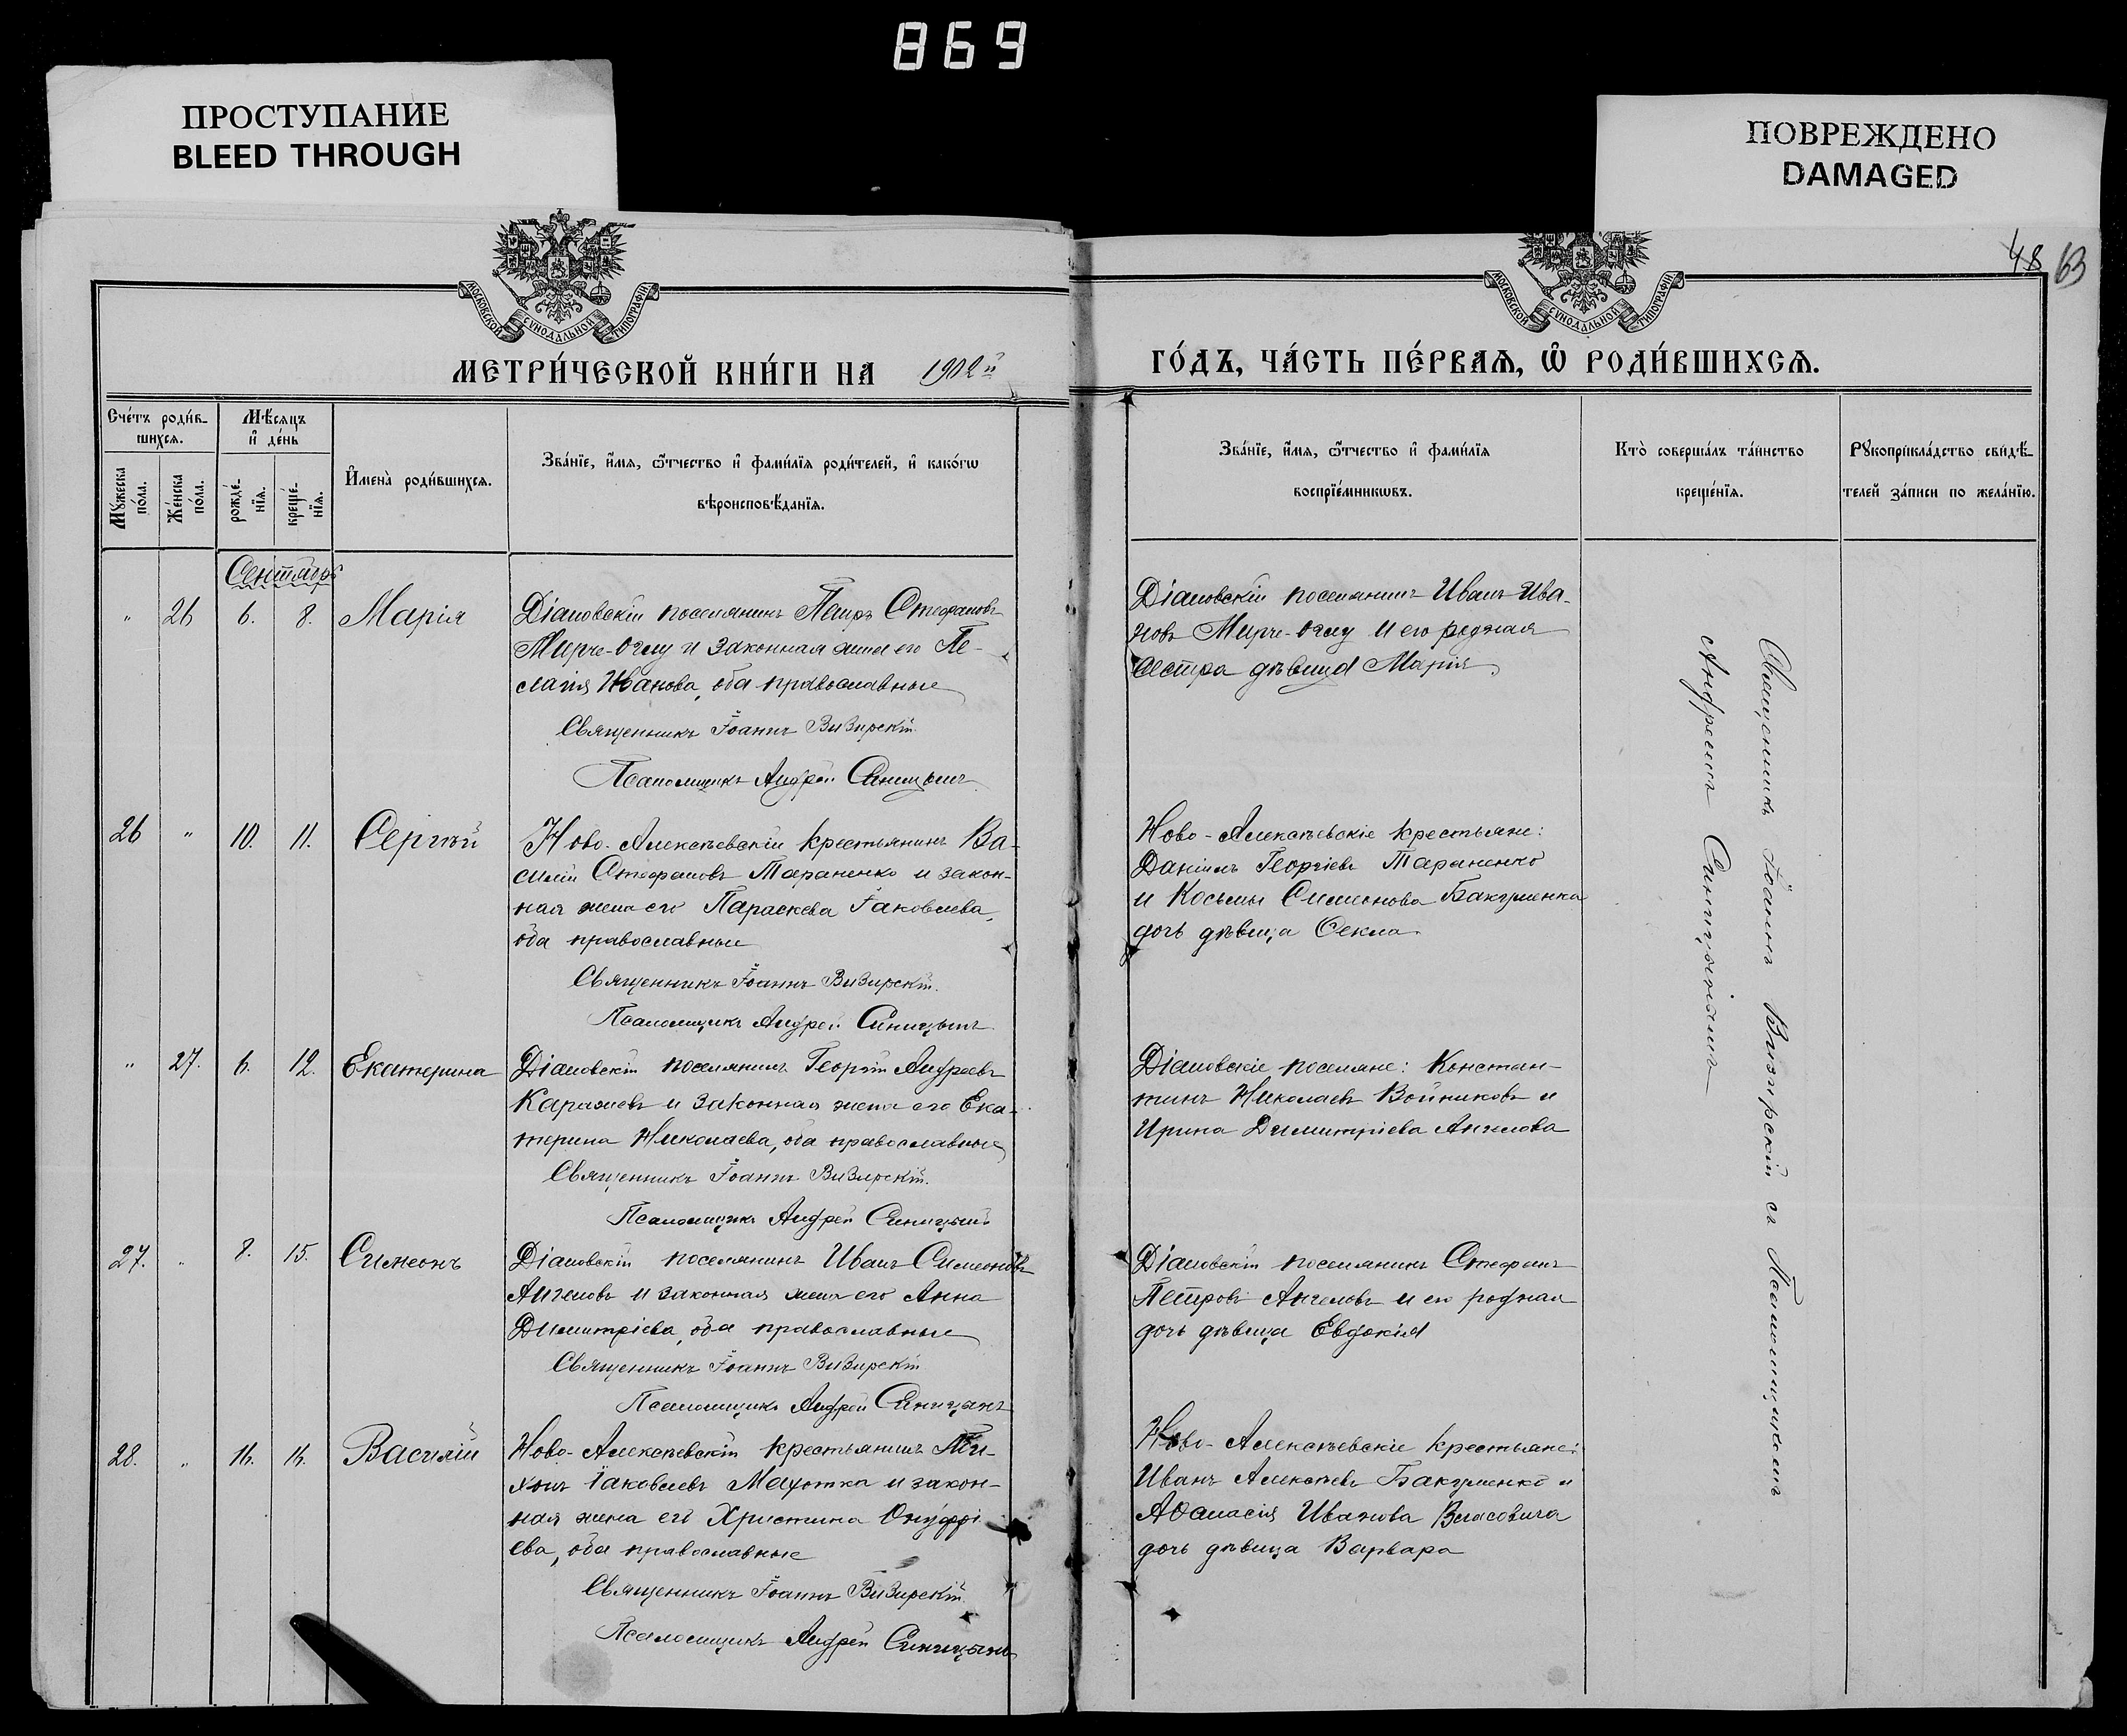 869
ПРОСТУПАНИЕ
BLEED THROUGH
ПОВРЕЖДЕНО
DAMAGED
48 63
МОСКОВСКОЙ СѴНОДАЛЬНОЙ ТИПОГРАФІИ
МОСКОВСКОЙ СѴНОДАЛЬНОЙ ТИПОГРАФІИ
МЕТРИ́ЧЕСКОЙ КНИ́ГИ НА 1902й
ГО́ДЪ, ЧА́СТЬ ПЕ́РВАѦ, Ѿ РОДИ́ВШИХСѦ.
Сче́тъ роди́в-
шихсѧ.
Мꙋ́жеска
по́ла.
Же́нска
по́ла.
Мѣ́сѧцъ
и҆ де́нь
рожде́-
нїѧ.
креще́-
нїѧ.
И҆мена̀ роди́вшихсѧ.
Зва́нїе, и҆́мѧ, ѻ҆́тчество и҆ фами́лїѧ роди́телей, и҆ како́гѡ
вѣроисповѣ́данїѧ.
Зва́нїе, и҆́мѧ, ѻ҆́тчество и҆ фами́лїѧ
воспрїе́мникѡвъ.
Кто̀ соверша́лъ та́инство
креще́нїѧ.
Рꙋкоприкла́дство свидѣ́-
телей за́писи по жела́нїю.
Сентябрь
" 26 6. 8. Марія
Діановскій поселянинъ Петръ Стефановъ
Мирче-Оглу и законная жена его Пе-
лагія Иванова, оба православные
Священникъ Іоаннъ Визирскій.
Псаломщикъ Андрей Синицынъ
Діановскій поселянинъ Иванъ Ива-
новъ Мирче-Оглу и его родная
сестра дѣвица Марія
26 " 10. 11. Сергѣй
Ново-Алексѣевскій крестьянинъ Ва-
силій Стефановъ Тараненко и закон-
ная жена его Параскева Іаковлева,
оба православные
Священникъ Іоаннъ Визирскій.
Псаломщикъ Андрей Синицынъ
Ново-Алексѣевскіе крестьяне:
Даніилъ Георгіевъ Тараненко
и Косьмы Симеонова Бакуменка
дочь дѣвица Ѳекла.
" 27. 6. 12. Екатерина
Діановскій поселянинъ Георгій Андреевъ
Каражовъ и законная жена его Ека-
терина Николаева, оба православные
Священникъ Іоаннъ Визирскій.
Псаломщикъ Андрей Синицынъ
Діановскіе поселяне: Констан-
тинъ Николаевъ Войниковъ и
Ирина Димитріева Ангелова
27. " 8. 15. Симеонъ
Діановскій поселянинъ Иванъ Симеоновъ
Ангеловъ и законная жена его Анна
Димитріева, оба православные
Священникъ Іоаннъ Визирскій
Псаломщикъ Андрей Синицынъ
Діановскій поселянинъ Стефанъ
Петровъ Ангеловъ и его родная
дочь дѣвица Евдокія
28. " 16. 16. Василій
Ново-Алексѣевскій крестьянинъ Ти-
хонъ Іаковлевъ и закон-
ная жена его Христина Онуфрі-
ева, оба православные
Священникъ Іоаннъ Визирскій.
Псаломщикъ Андрей Синицынъ
Ново-Алексѣевскіе крестьяне:
Иванъ Алексѣевъ Бакуменко и
Аѳанасія Иванова Власовича
дочь дѣвица Варвара
Священникъ Іоаннъ Визирскій съ Псаломщикомъ
Андреемъ Синицынымъ